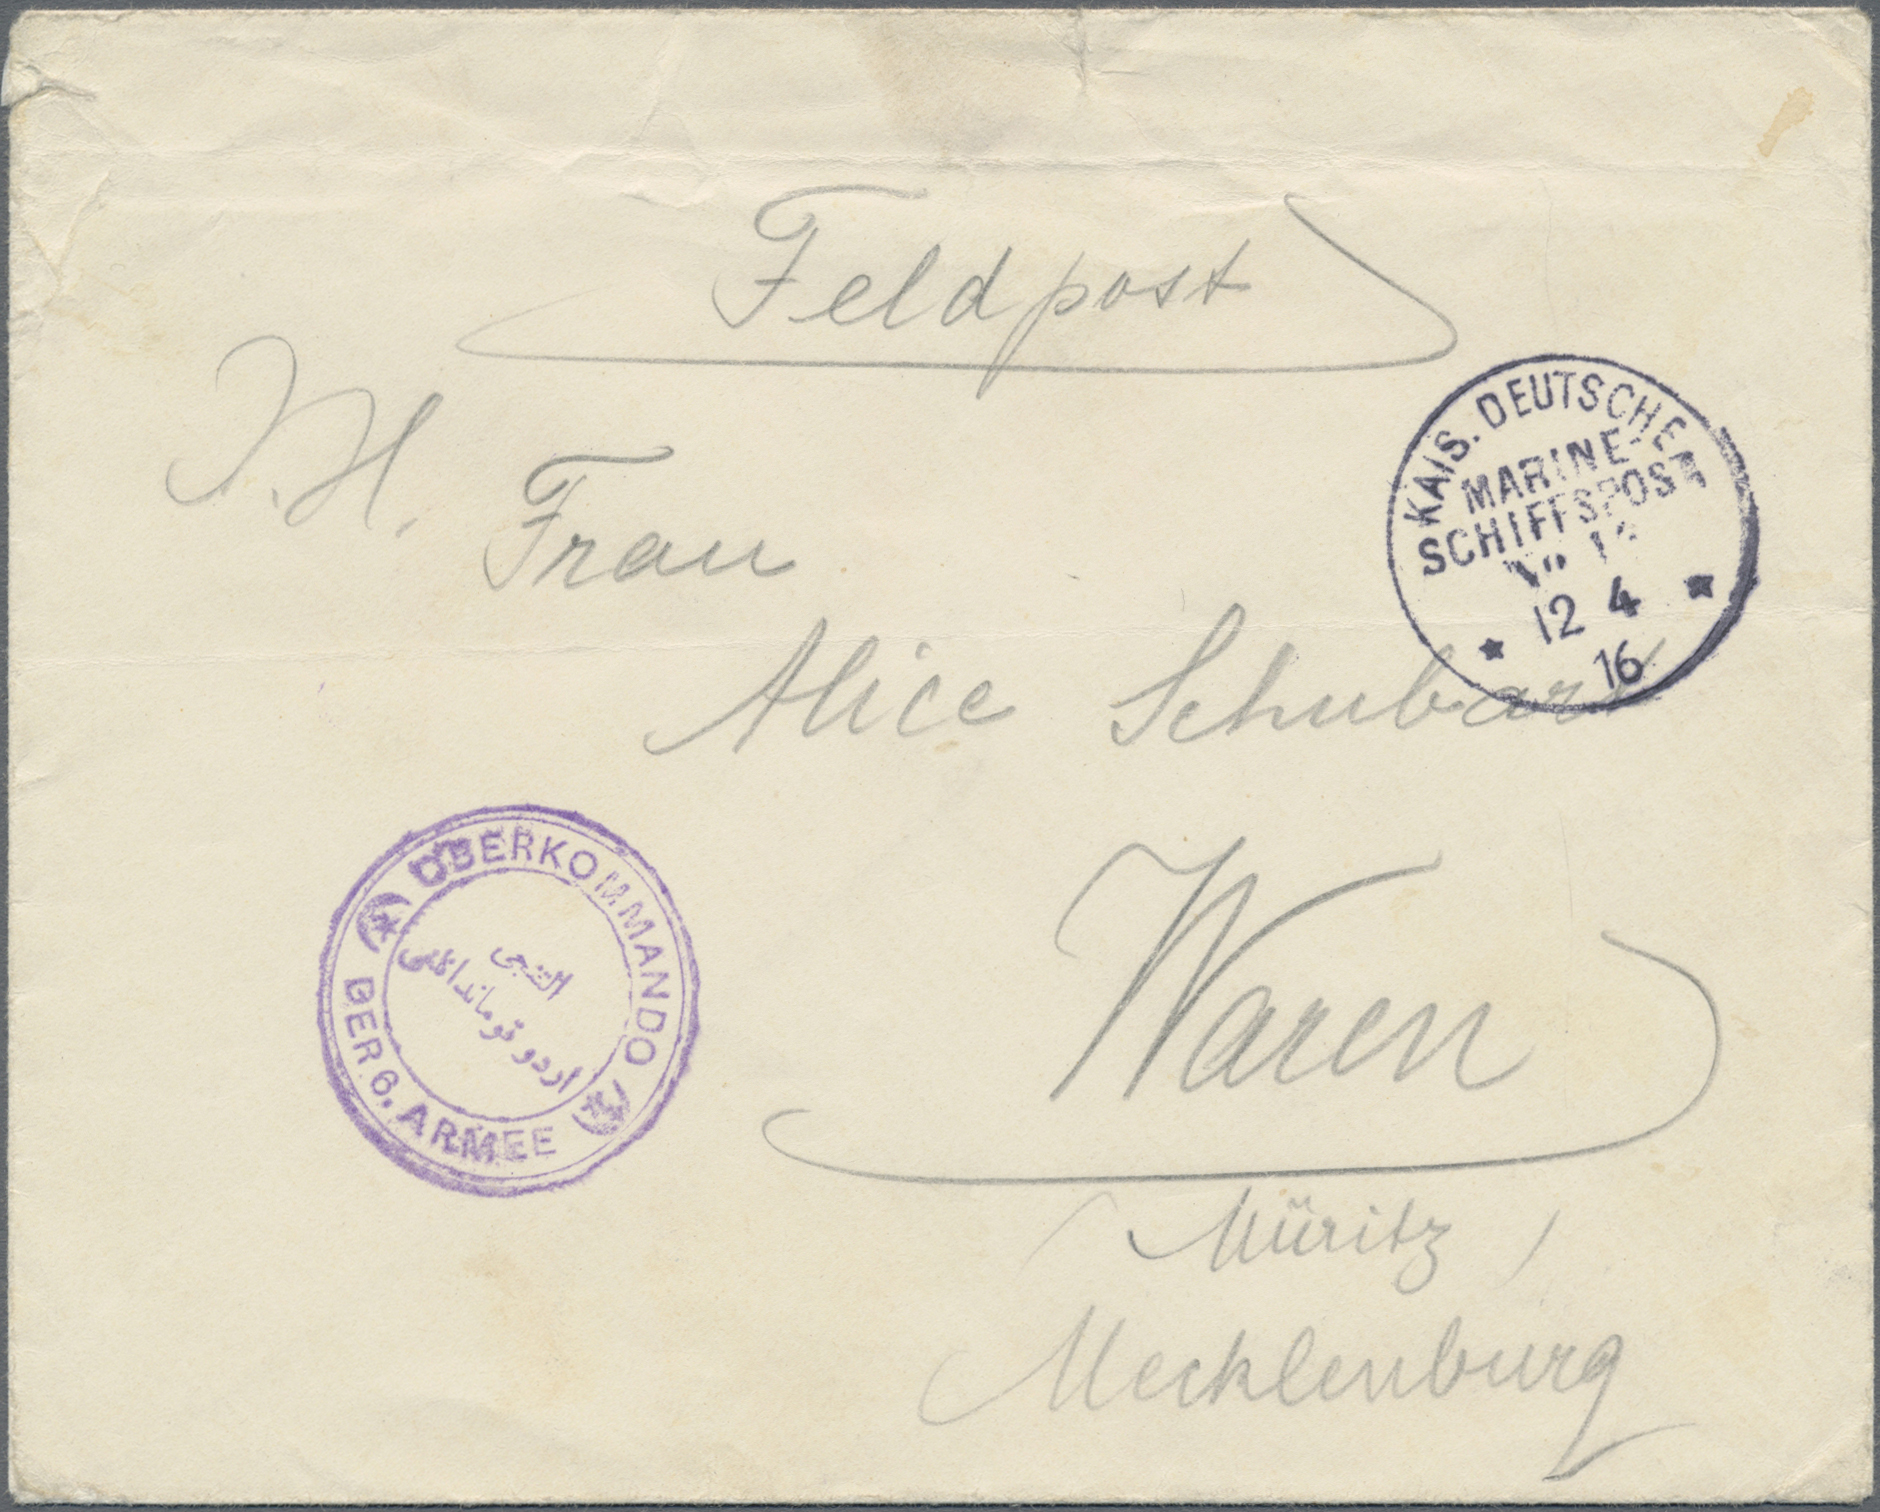 Feldpost
I.H. Frau
Alice Schubart
Waren
(Müritz)
Mecklenburg
KAIS. DEUTSCHE
MARINE-
SCHIFFSPOST
No
12 4
16
OBERKOMMANDO
DER 6. ARMEE
التنجى
اردو قوماندانلغى